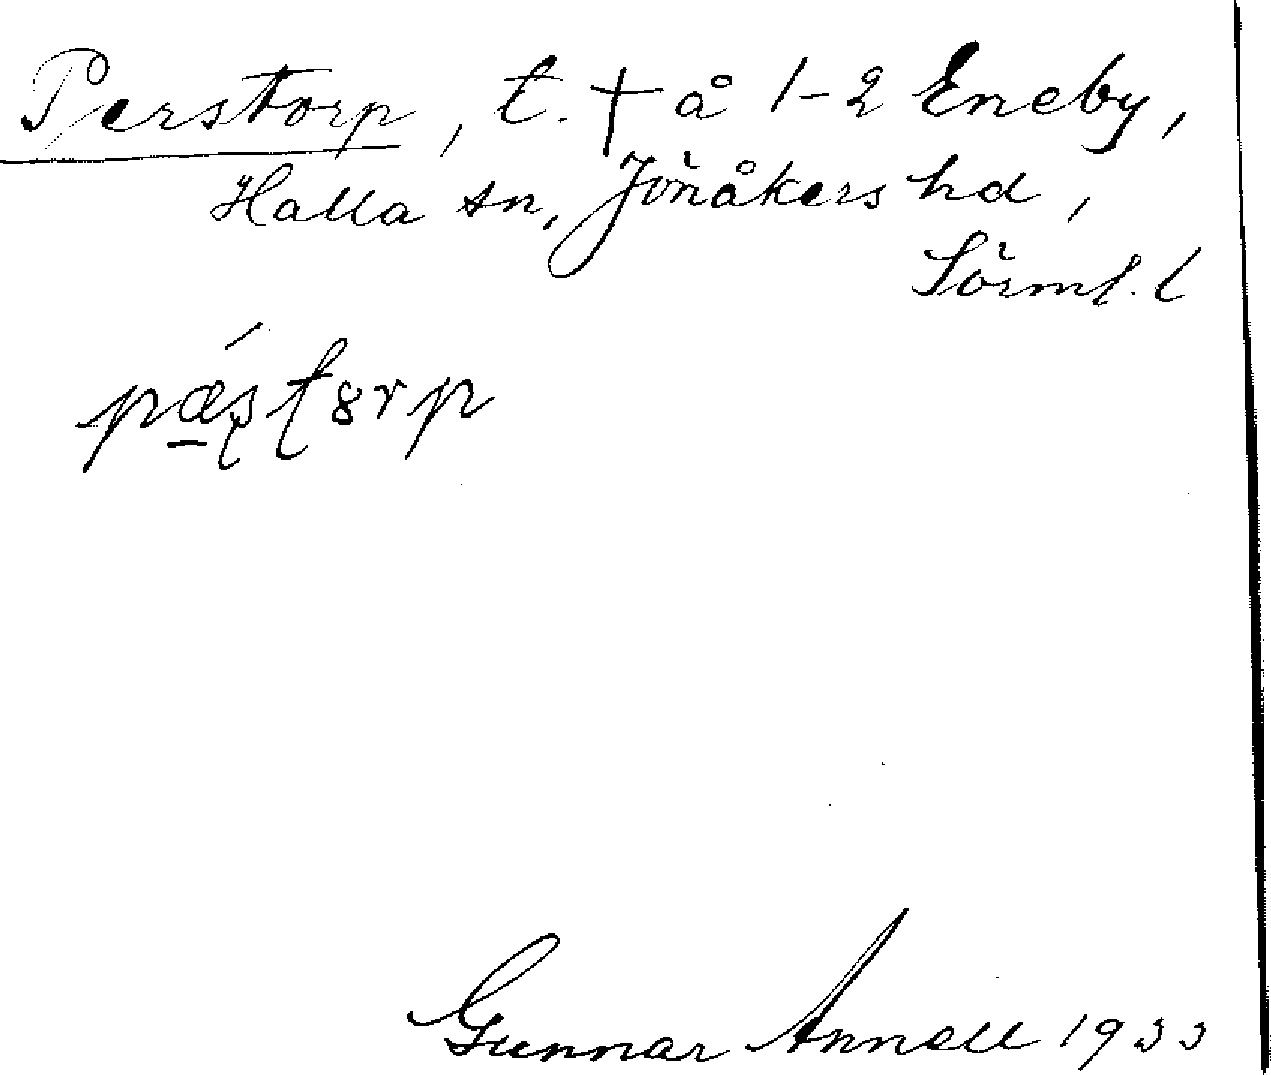 Perstorp, t. † å 1-2 Eneby,
Halla sn, Jönåkers hd,
Sörml. l
pǽ̲ştȣrp
Gunnar Annell 1933